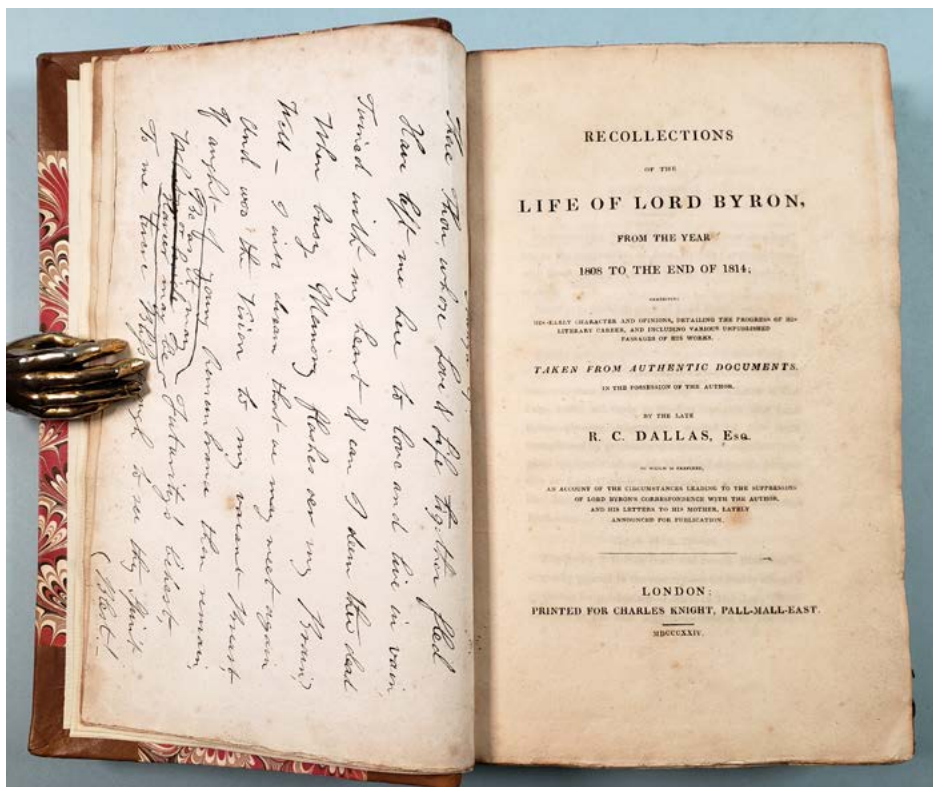 There Thou whose Love & Life together fled
Have left me here to love and live in vain
Twined with my heart & can I deem thee dead
When busy Memory flashes oer my Brain?
Well - I will dream that we may meet again
And woo the Vision to my vacant Breast
If aught of Young Remembrance then remain
Be as it may
Futurity's behest,
Howeer may be
To me twere Bliss enough to see thy Spirit
(Blest! -
RECOLLECTIONS
OF THE
LIFE OF LORD BYRON,
FROM THE YEAR
1808 TO THE END OF 1814;
EXHIBITING
HIS EARLY CHARACTER AND OPINIONS, DETAILING THE PROGRESS OF HIS
LITERARY CAREER, AND INCLUDING VARIOUS UNPUBLISHED
PASSAGES OF HIS WORKS.
TAKEN FROM AUTHENTIC DOCUMENTS.
IN THE POSSESSION OF THE AUTHOR.
BY THE LATE
R. C. DALLAS, Esq.
TO WHICH IS PREFIXED,
AN ACCOUNT OF THE CIRCUMSTANCES LEADING TO THE SUPPRESSION
OF LORD BYRON'S CORRESPONDENCE WITH THE AUTHOR,
AND HIS LETTERS TO HIS MOTHER, LATELY
ANNOUNCED FOR PUBLICATION.
LONDON:
PRINTED FOR CHARLES KNIGHT, PALL-MALL-EAST.
MDCCCXXIV.